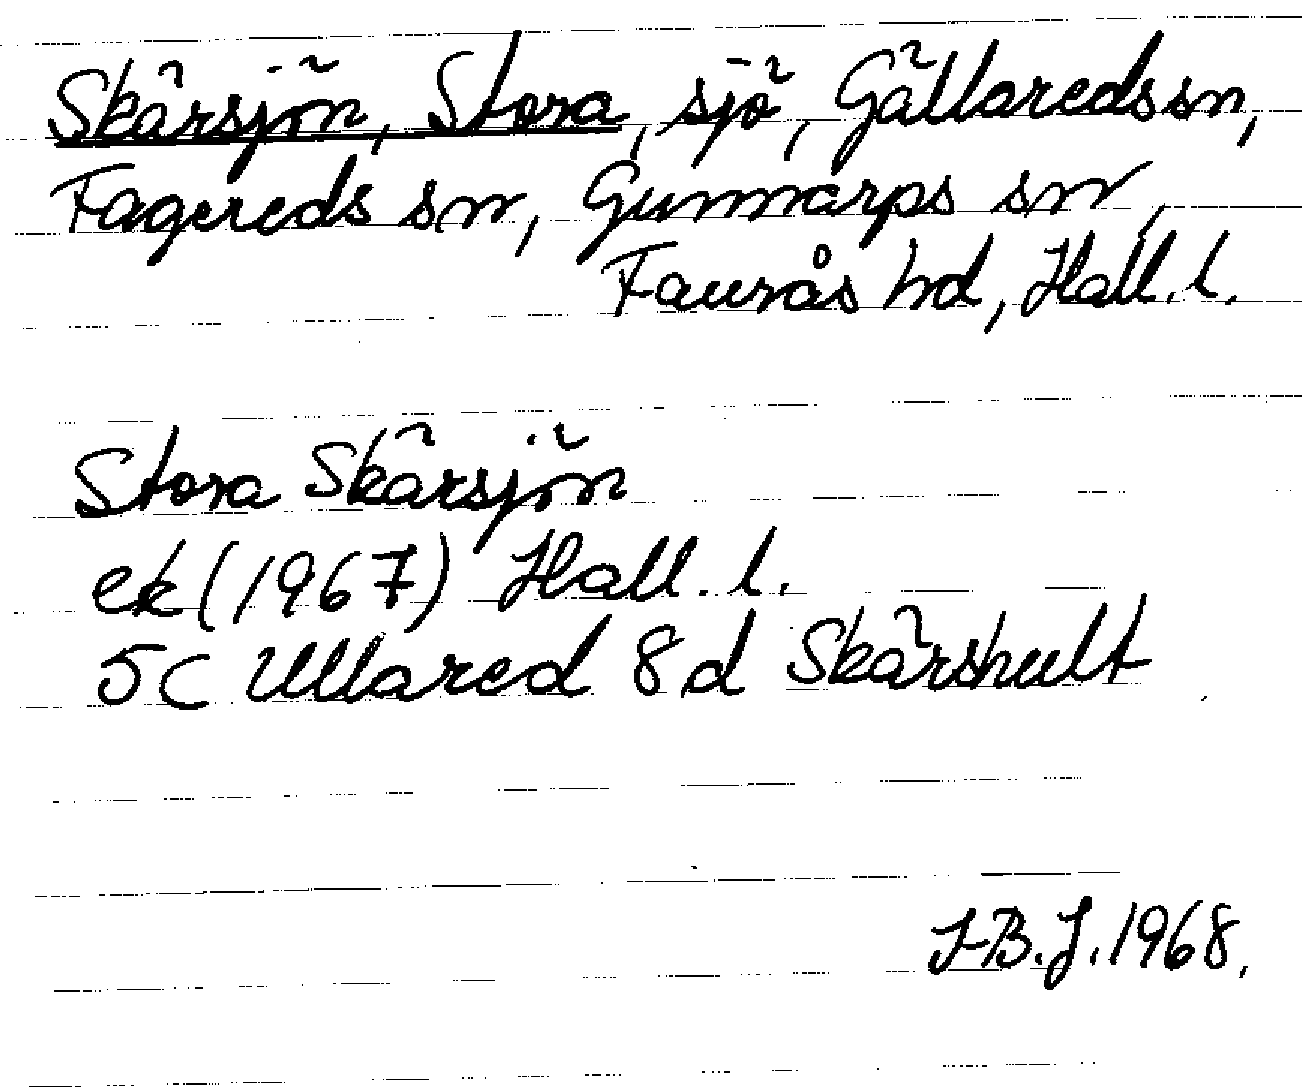 Skärsjön, Stora, sjö, Gällareds sn,
Fagereds sn, Gunnarps sn,
Faurås hd, Hall. l.
Stora Skärsjön
ek (1967) Hall. l.
5C Ullared 8d Skärshult
I-B.J. 1968.